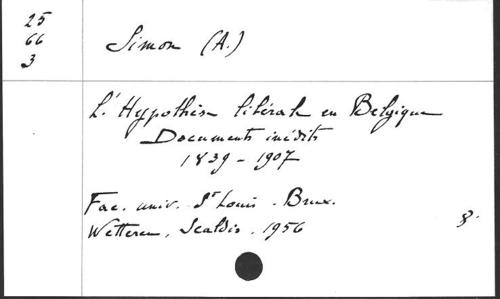 25
66
3
Simon (A.)
L'Hypothèse libérale en Belgique
Documents inédits
1839 - 1907
Fac. univ. St Louis. Brux.
Wetteren, Scaldis. 1956
8.